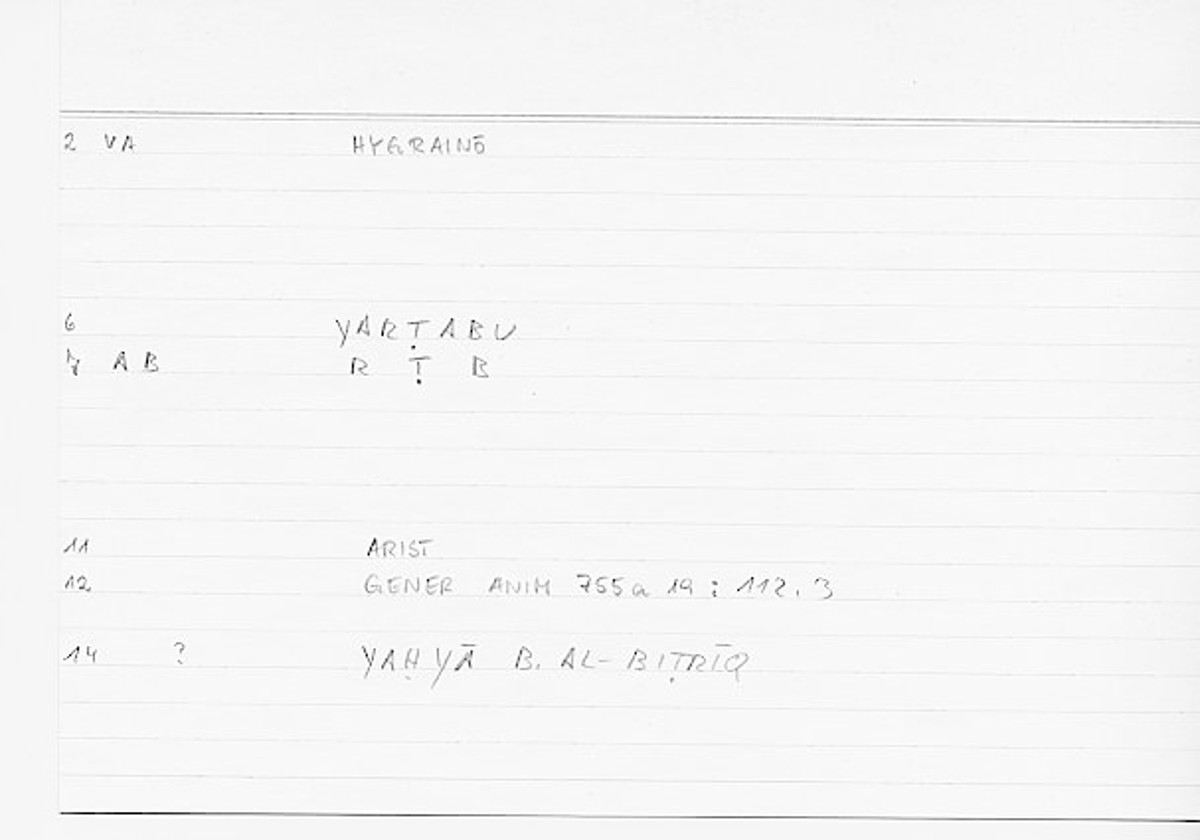 2 VA HYGRAINŌ
6 YARṬABU
7 AB R Ṭ B
11 ARIST
12 GENER ANIM 755a 19 : 112.3
14 ? YAḤYĀ B. AL-BIṬRĪQ